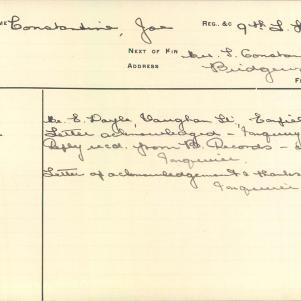 ME Constantine, Joe REG. &C 9th L. H
NEXT OF KIN Mrs. L. Constan
ADDRESS Bridgew
F
Mr. E. Doyle, Vaughan St., Enfiel
Letter acknowledged - Inquiry
Reply recd. from B. Records - s
Inquiries.
Letter of acknowledgement & thanks
Inquirie